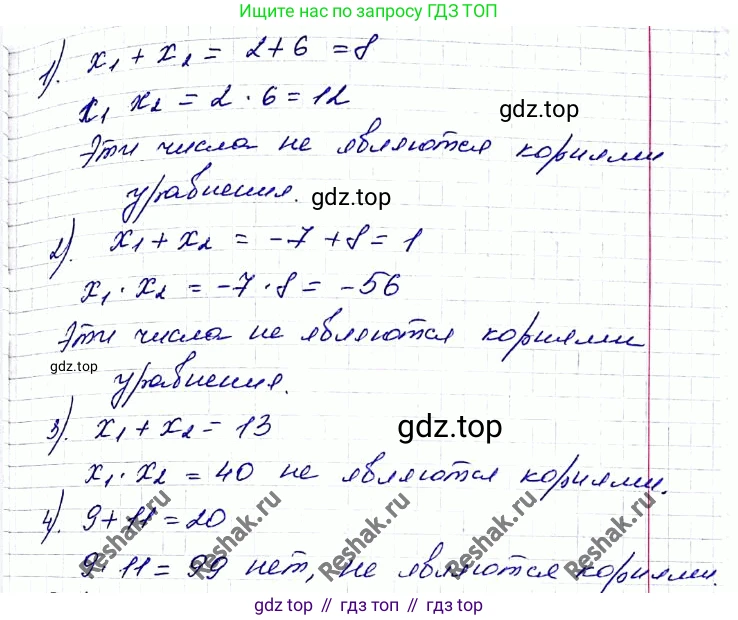 Ищите нас по запросу ГДЗ ТОП
1). x₁ + x₂ = 2+6 = 8
x₁ x₂ = 2 · 6 = 12
gdz.top
Эти числа не являются корнями
уравнения.
gdz.top
2). x₁ + x₂ = -7 + 8 = 1
x₁ · x₂ = -7 · 8 = -56
Эти числа не являются корнями
gdz.top
уравнения.
3). x₁ + x₂ = 13
gdz.top
x₁ · x₂ = 40 не являются корнями.
4). 9 + 11 = 20
9 · 11 = 99 нет, не являются корнями.
Reshak.ru
Reshak.ru
Reshak.ru
Reshak.ru
Reshak.ru
gdz top // гдз топ // gdz.top // гдз.топ